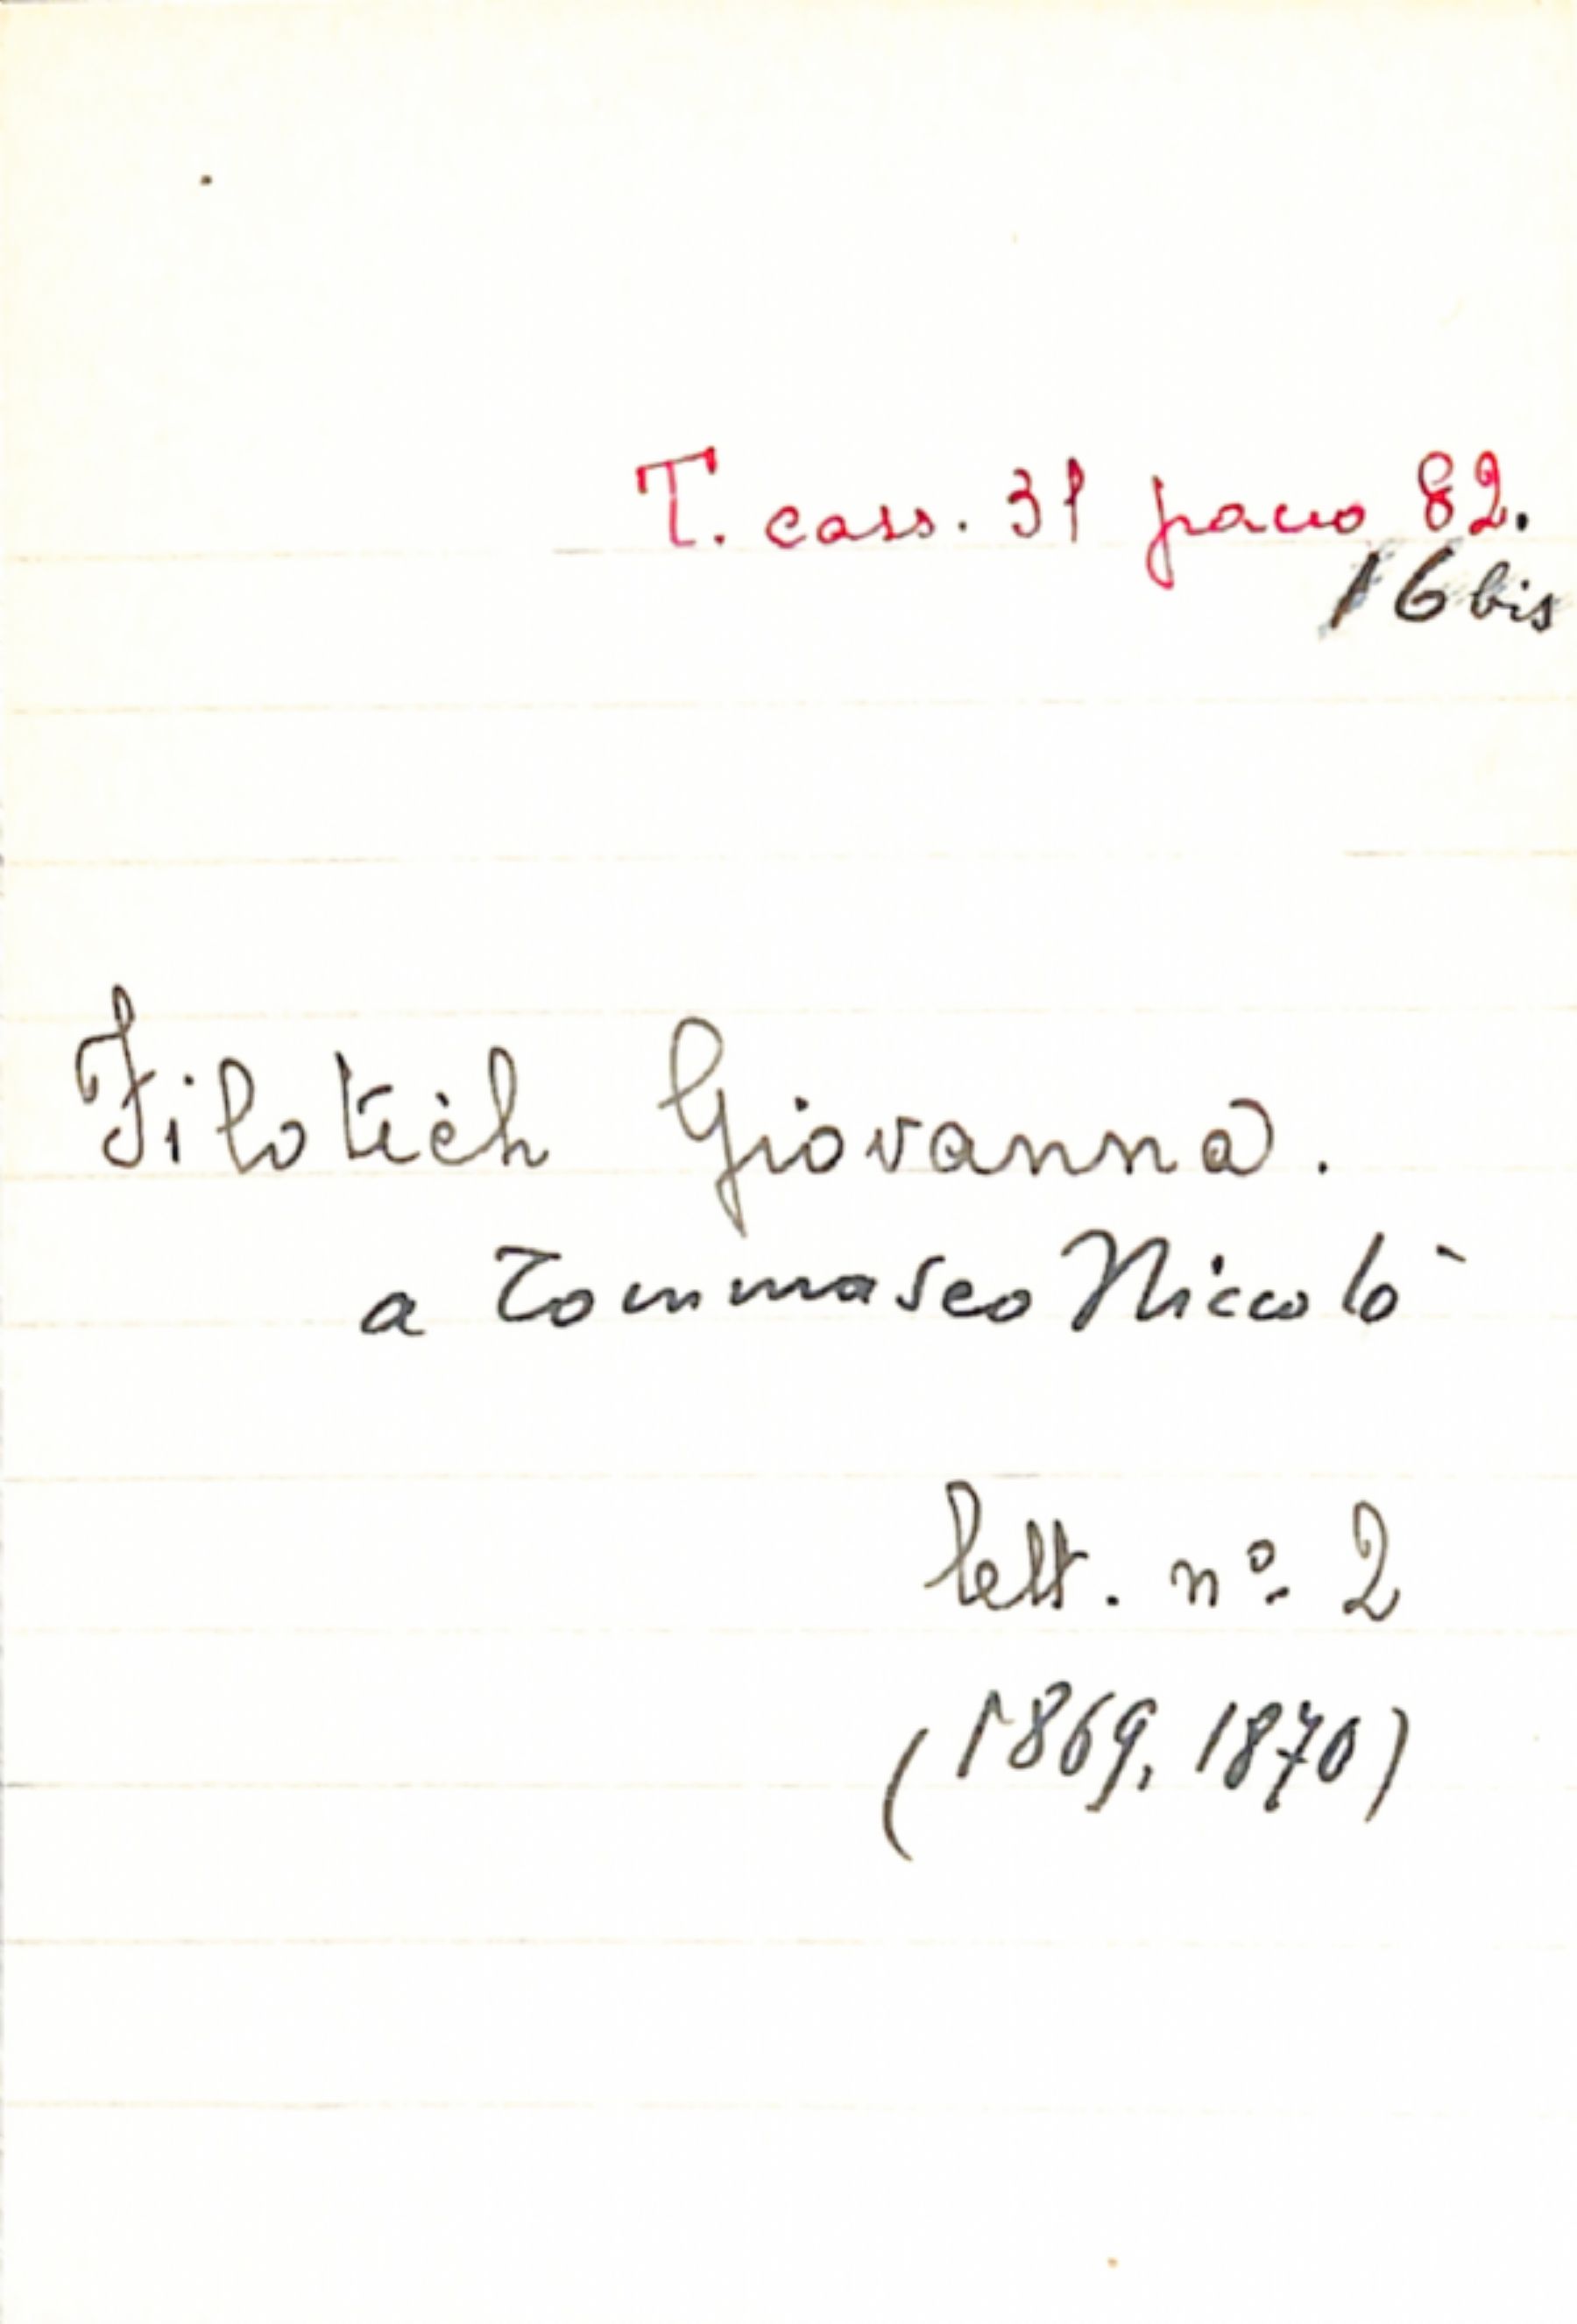 T. cass. 31 pacco 82.
16 bis
Filotich Giovanna.
a Tommaseo Niccolò
lett. nº 2
(1869, 1870)